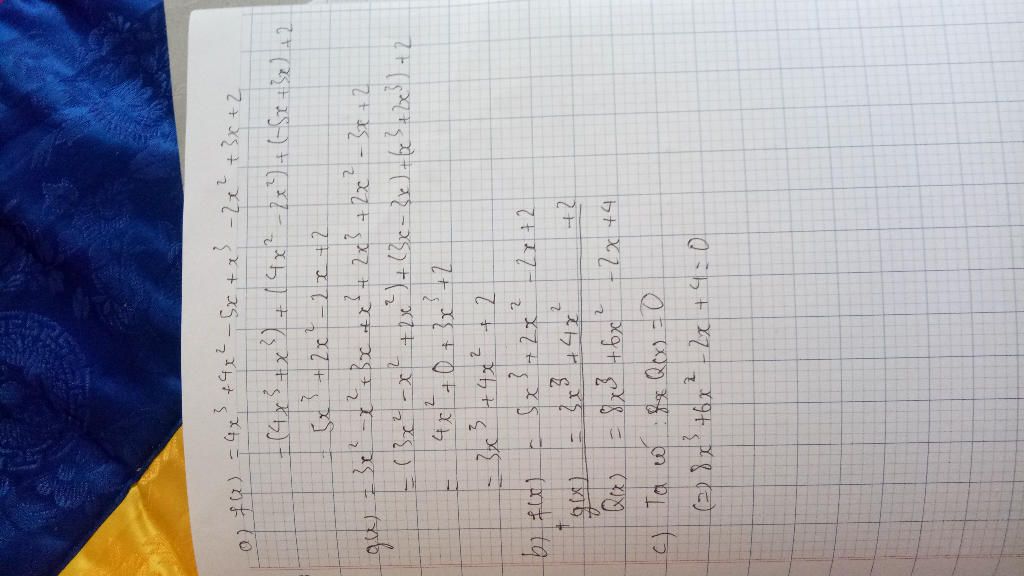 a) f(x) = 4x³ + 4x² - 5x + x³ - 2x² + 3x + 2
= (4x³ + x³) + (4x² - 2x²) + (-5x + 3x) + 2
= 5x³ + 2x² - 2x + 2
g(x) = 3x² - x² + 3x + x³ + 2x³ + 2x² - 3x + 2
= (3x² - x² + 2x²) + (3x - 3x) + (x³ + 2x³) + 2
= 4x² + 0 + 3x³ + 2
= 3x³ + 4x² + 2
b) f(x) = 5x³ + 2x² - 2x + 2
+
g(x) = 3x³ + 4x² + 2
Q(x) = 8x³ + 6x² - 2x + 4
c) Ta có : Q(x) = 0
(=) 8x³ + 6x² - 2x + 4 = 0